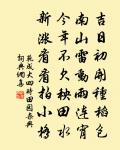 吉日初開種稻包
南山雷動雨連宵
今年不欠秧田水
新漲看看拍小橋
范成大四時田園雜興
詞典網